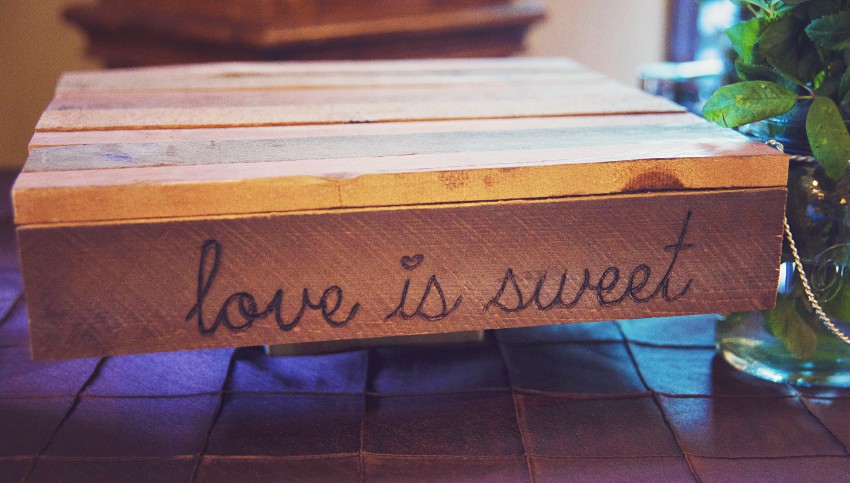 love is sweet